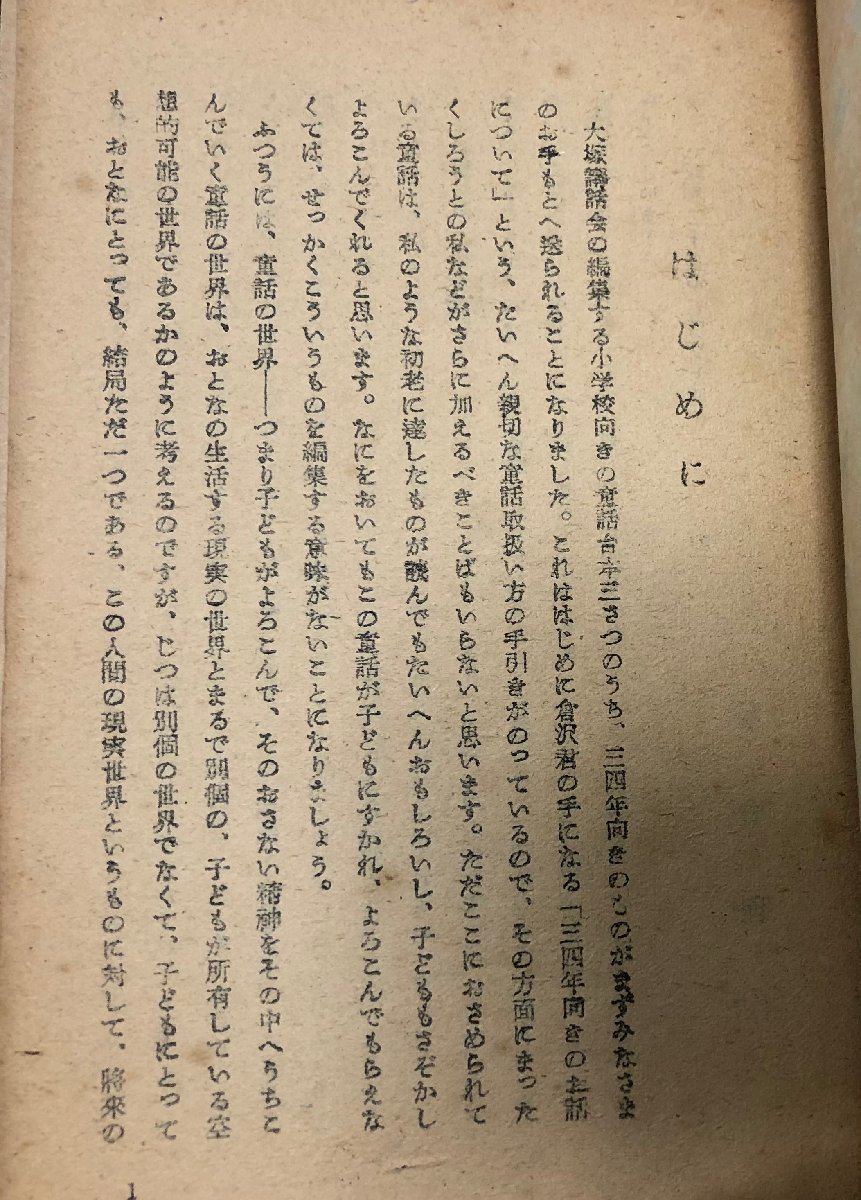 はじめに
大塚講話会の編集する小学校向きの童話台本三さつのうち、三四年向きのものがまずみなさま
のお手もとへ送られることになりました。これははじめに倉沢君の手になる「三四年向きのお話
について」という、たいへん親切な童話取扱い方の手引きがのっているので、その方面にまった
くしろうとの私などがさらに加えるべきことばもいらないと思います。ただここにおさめられて
いる童話は、私のような初老に達したものが読んでもたいへんおもしろいし、子どももさぞかし
よろこんでくれると思います。なにをおいてもこの童話が子どもにすかれ、よろこんでもらえな
くては、せっかくこういうものを編集する意味がないことになりましょう。
ふつうには、童話の世界――つまり子どもがよろこんで、そのおさない精神をその中へうちこ
んでいく童話の世界は、おとなの生活する現実の世界とまるで別個の、子どもが所有している空
想的可能の世界であるかのように考えるのですが、じつは別個の世界でなくて、子どもにとって
も、おとなにとっても、結局ただ一つである、この人間の現実世界というものに対して、將来の
1